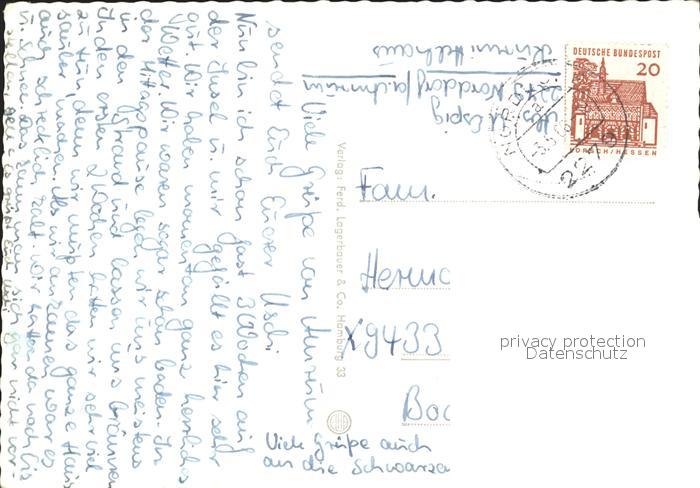 Viele Grüße von Amrum
sendet Euch Eurer Uschi.
Nun bin ich schon fast 3 Wochen auf
der Insel u. mir gefällt es hier sehr
gut. Wir haben momentan ganz herrliches
Wetter. Wir waren sogar schon baden. In
der Mittagspause legen wir uns meistens
in den Strand und lassen uns bräunen.
In den ersten 2 Wochen hatten wir sehr viel
zu tun, denn wir mußten das ganze Haus
sauber machen. Als wir an kamen war es
auch schrecklich kalt. Wir hatten da noch Eis
u. Schnee, das kann man sich gar nicht vor-
Abs.
2279 Norddorf/Amrum
DEUTSCHE BUNDESPOST
20
LORSCH/HESSEN
2279
Verlag: Ferd. Lagerbauer & Co. Hamburg 33
Fam.
Herm
X9433
Boc
Viele Grüße auch
an die Schwarza
privacy protection
Datenschutz